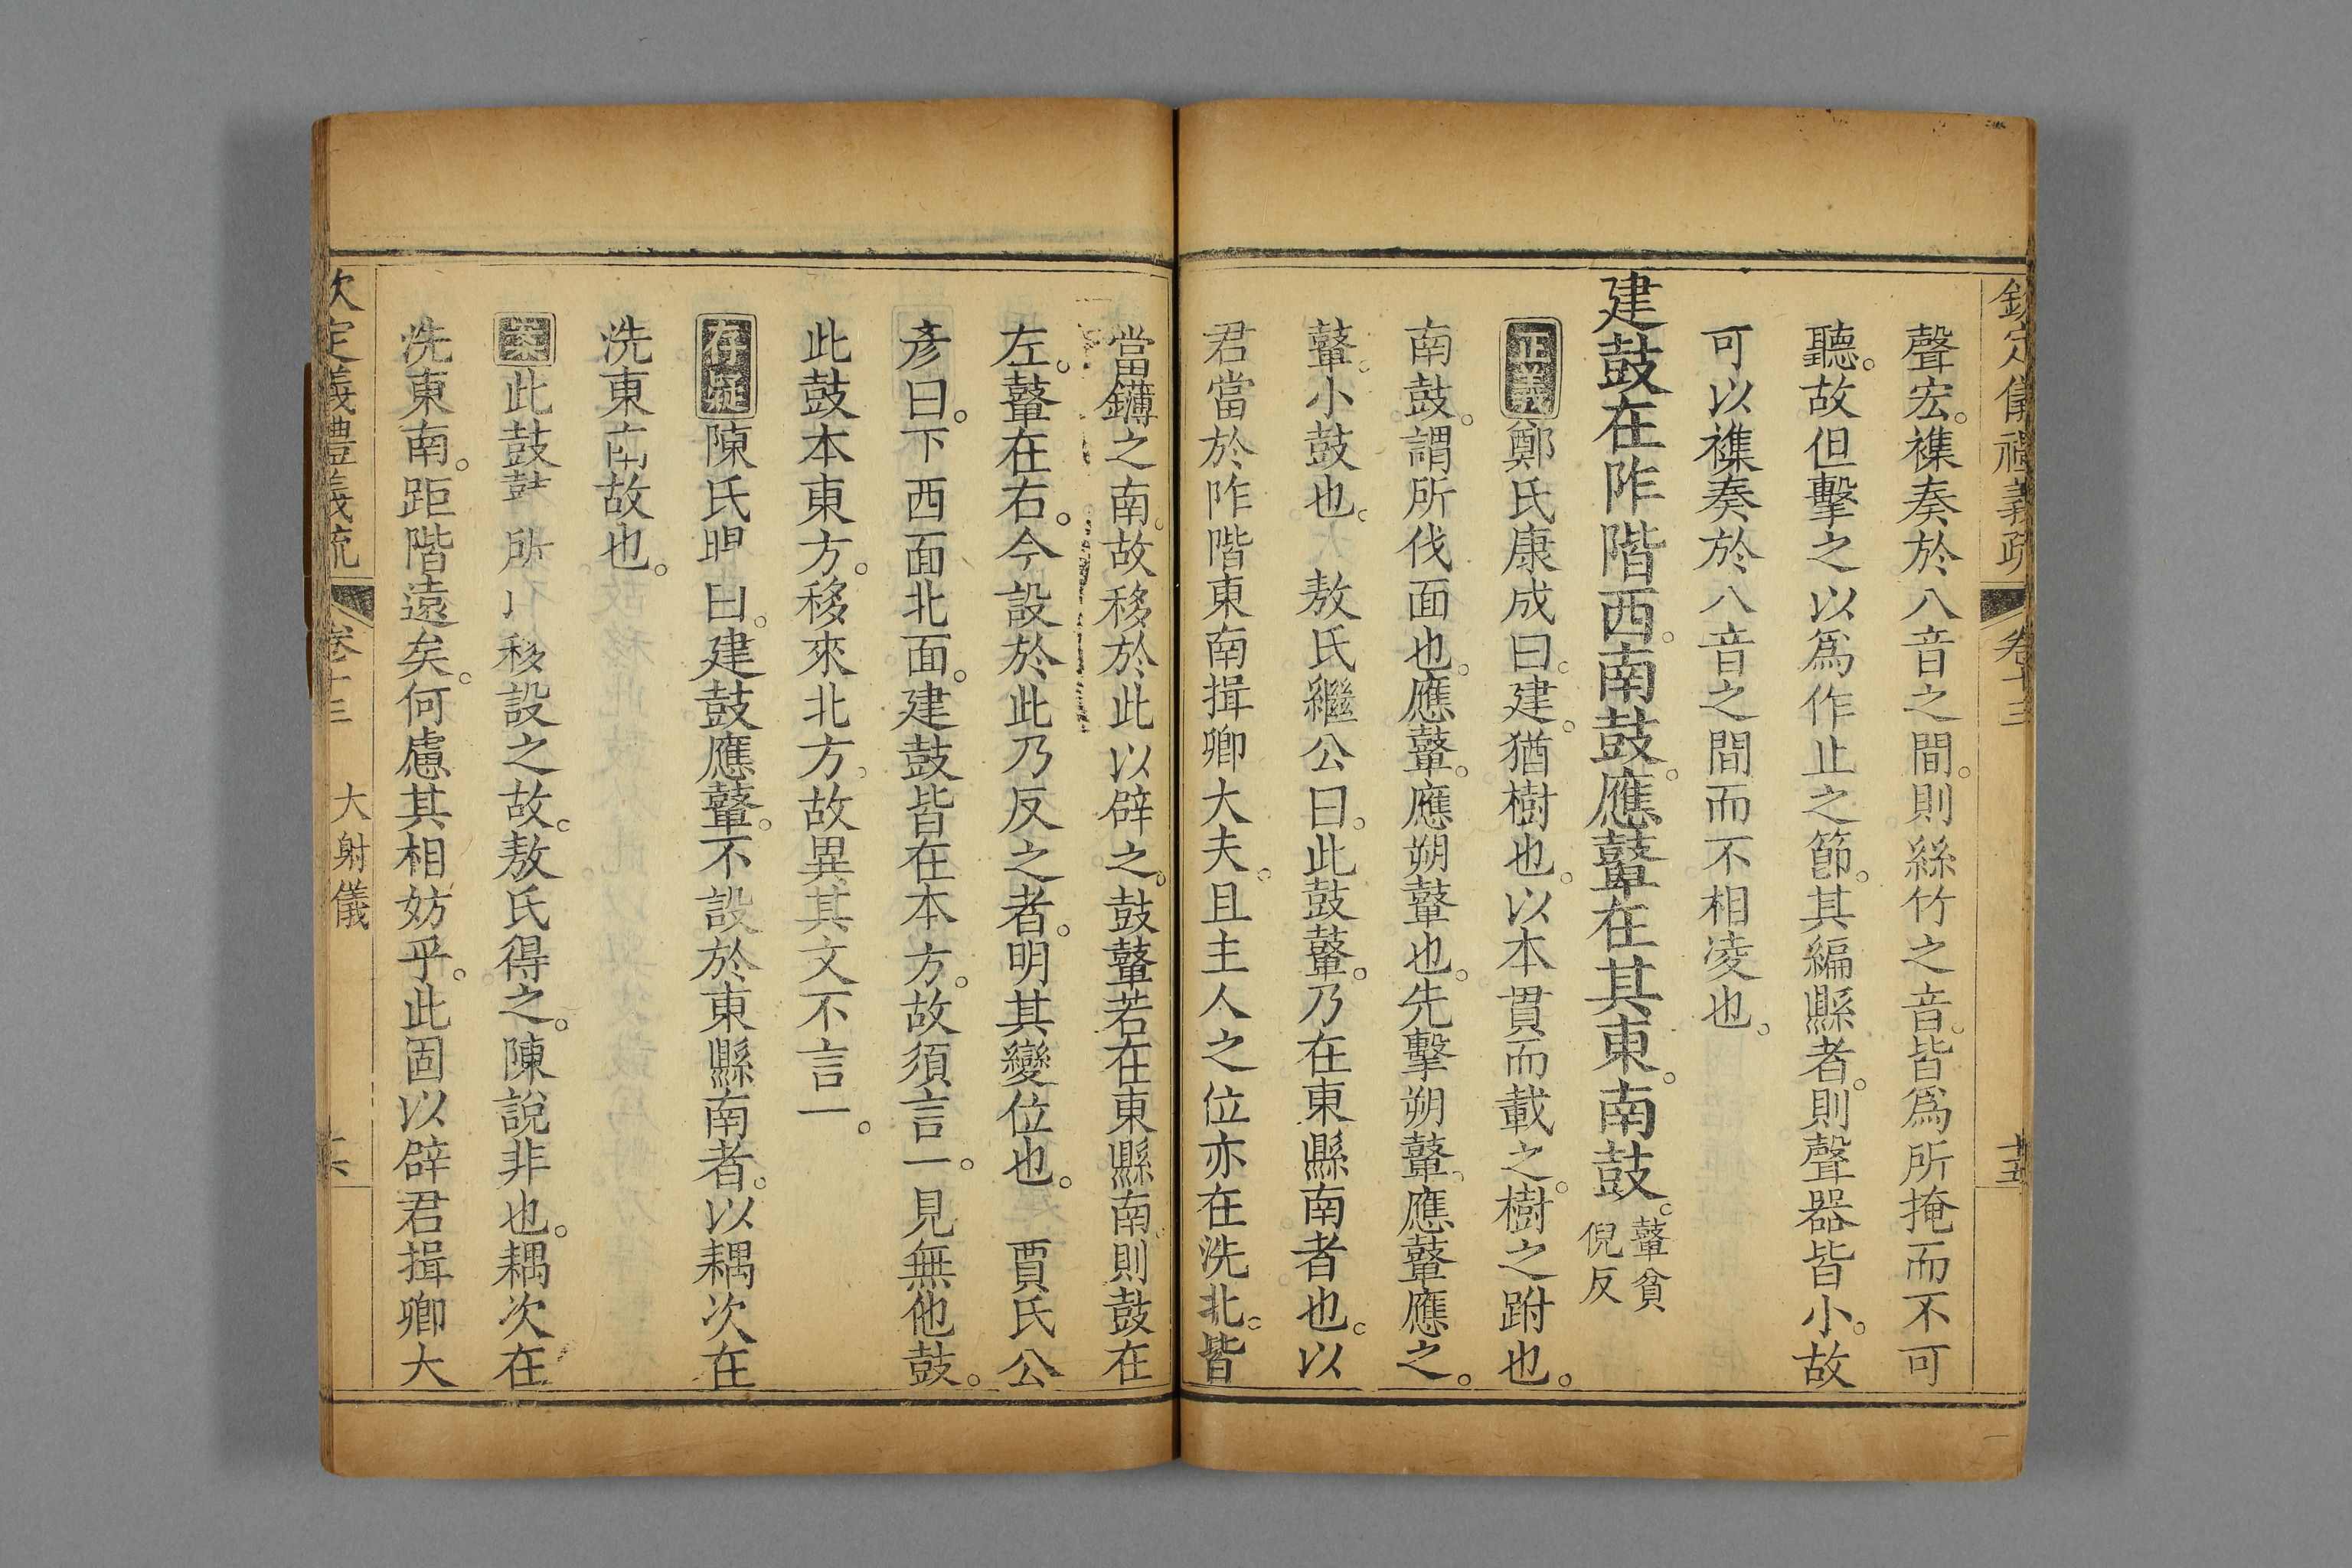 欽定儀禮義疏 卷十三 十五
聲宏。襍奏於八音之間。則絲竹之音。皆爲所掩而不可
聽。故但擊之以爲作止之節。其編縣者。則聲器皆小。故
可以襍奏於八音之間而不相凌也。
建鼓在阼階西。南鼓。應鼙在其東。南鼓。鼙貧倪反
正義鄭氏康成曰。建。猶樹也。以本貫而載之。樹之跗也。
南鼓。謂所伐面也。應鼙。應朔鼙也。先擊朔鼙。應鼙應之。
鼙。小鼓也。 敖氏繼公曰。此鼓鼙。乃在東縣南者也。以
君當於阼階東南揖卿大夫。且主人之位亦在洗北。皆
當鑮之南。故移於此以辟之。鼓鼙若在東縣南。則鼓在
左。鼙在右。今設於此乃反之者。明其變位也。 賈氏公
彥曰。下西面北面。建鼓皆在本方。故須言一。見無他鼓。
此鼓本東方。移來北方。故異其文不言一。
存疑陳氏 曰。建鼓應鼙。不設於東縣南者。以耦次在
洗東南故也。
案此鼓 所 移設之故。敖氏得之。陳說非也。耦次在
洗東南。距階遠矣。何慮其相妨乎。此固以辟君揖卿大
欽定儀禮義疏 卷十三 大射儀 十六